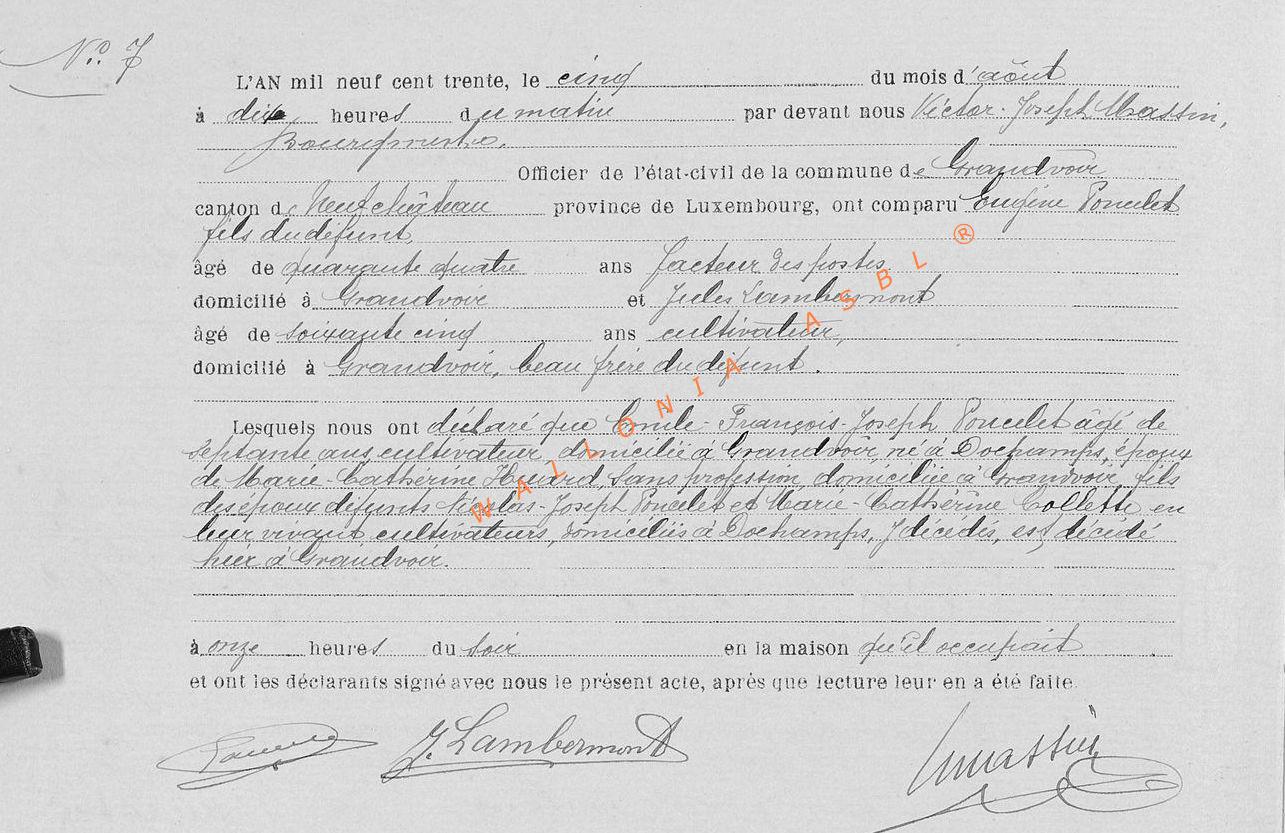 N° 7
L'AN mil neuf cent trente, le cinq du mois d'août
à dix heures du matin par devant nous Victor-Joseph Massin,
Bourgmestre,
Officier de l'état-civil de la commune de Grandvoir
canton de Neufchâteau province de Luxembourg, ont comparu Eugène Poncelet
fils du défunt,
âgé de quarante quatre ans facteur des postes
domicilié à Grandvoir et Jules Lambermont
âgé de soixante cinq ans cultivateur,
domicilié à Grandvoir, beau frère du défunt.
Lesquels nous ont déclaré que Emile-François-Joseph Poncelet âgé de
septante ans, cultivateur, domicilié à Grandvoir, né à Dochamps, époux
de Marie-Cathérine Huard, sans profession, domiciliée à Grandvoir, fils
des époux défunts Nicolas-Joseph Poncelet et Marie-Cathérine Collette en
leur vivant cultivateurs, domiciliés à Dochamps, y décédés, est décédé
hier à Grandvoir.
à onze heures du soir en la maison qu'il occupait
et ont les déclarants signé avec nous le présent acte, après que lecture leur en a été faite.
J. Lambermont Vmassin
WALLONIA ASBL ®